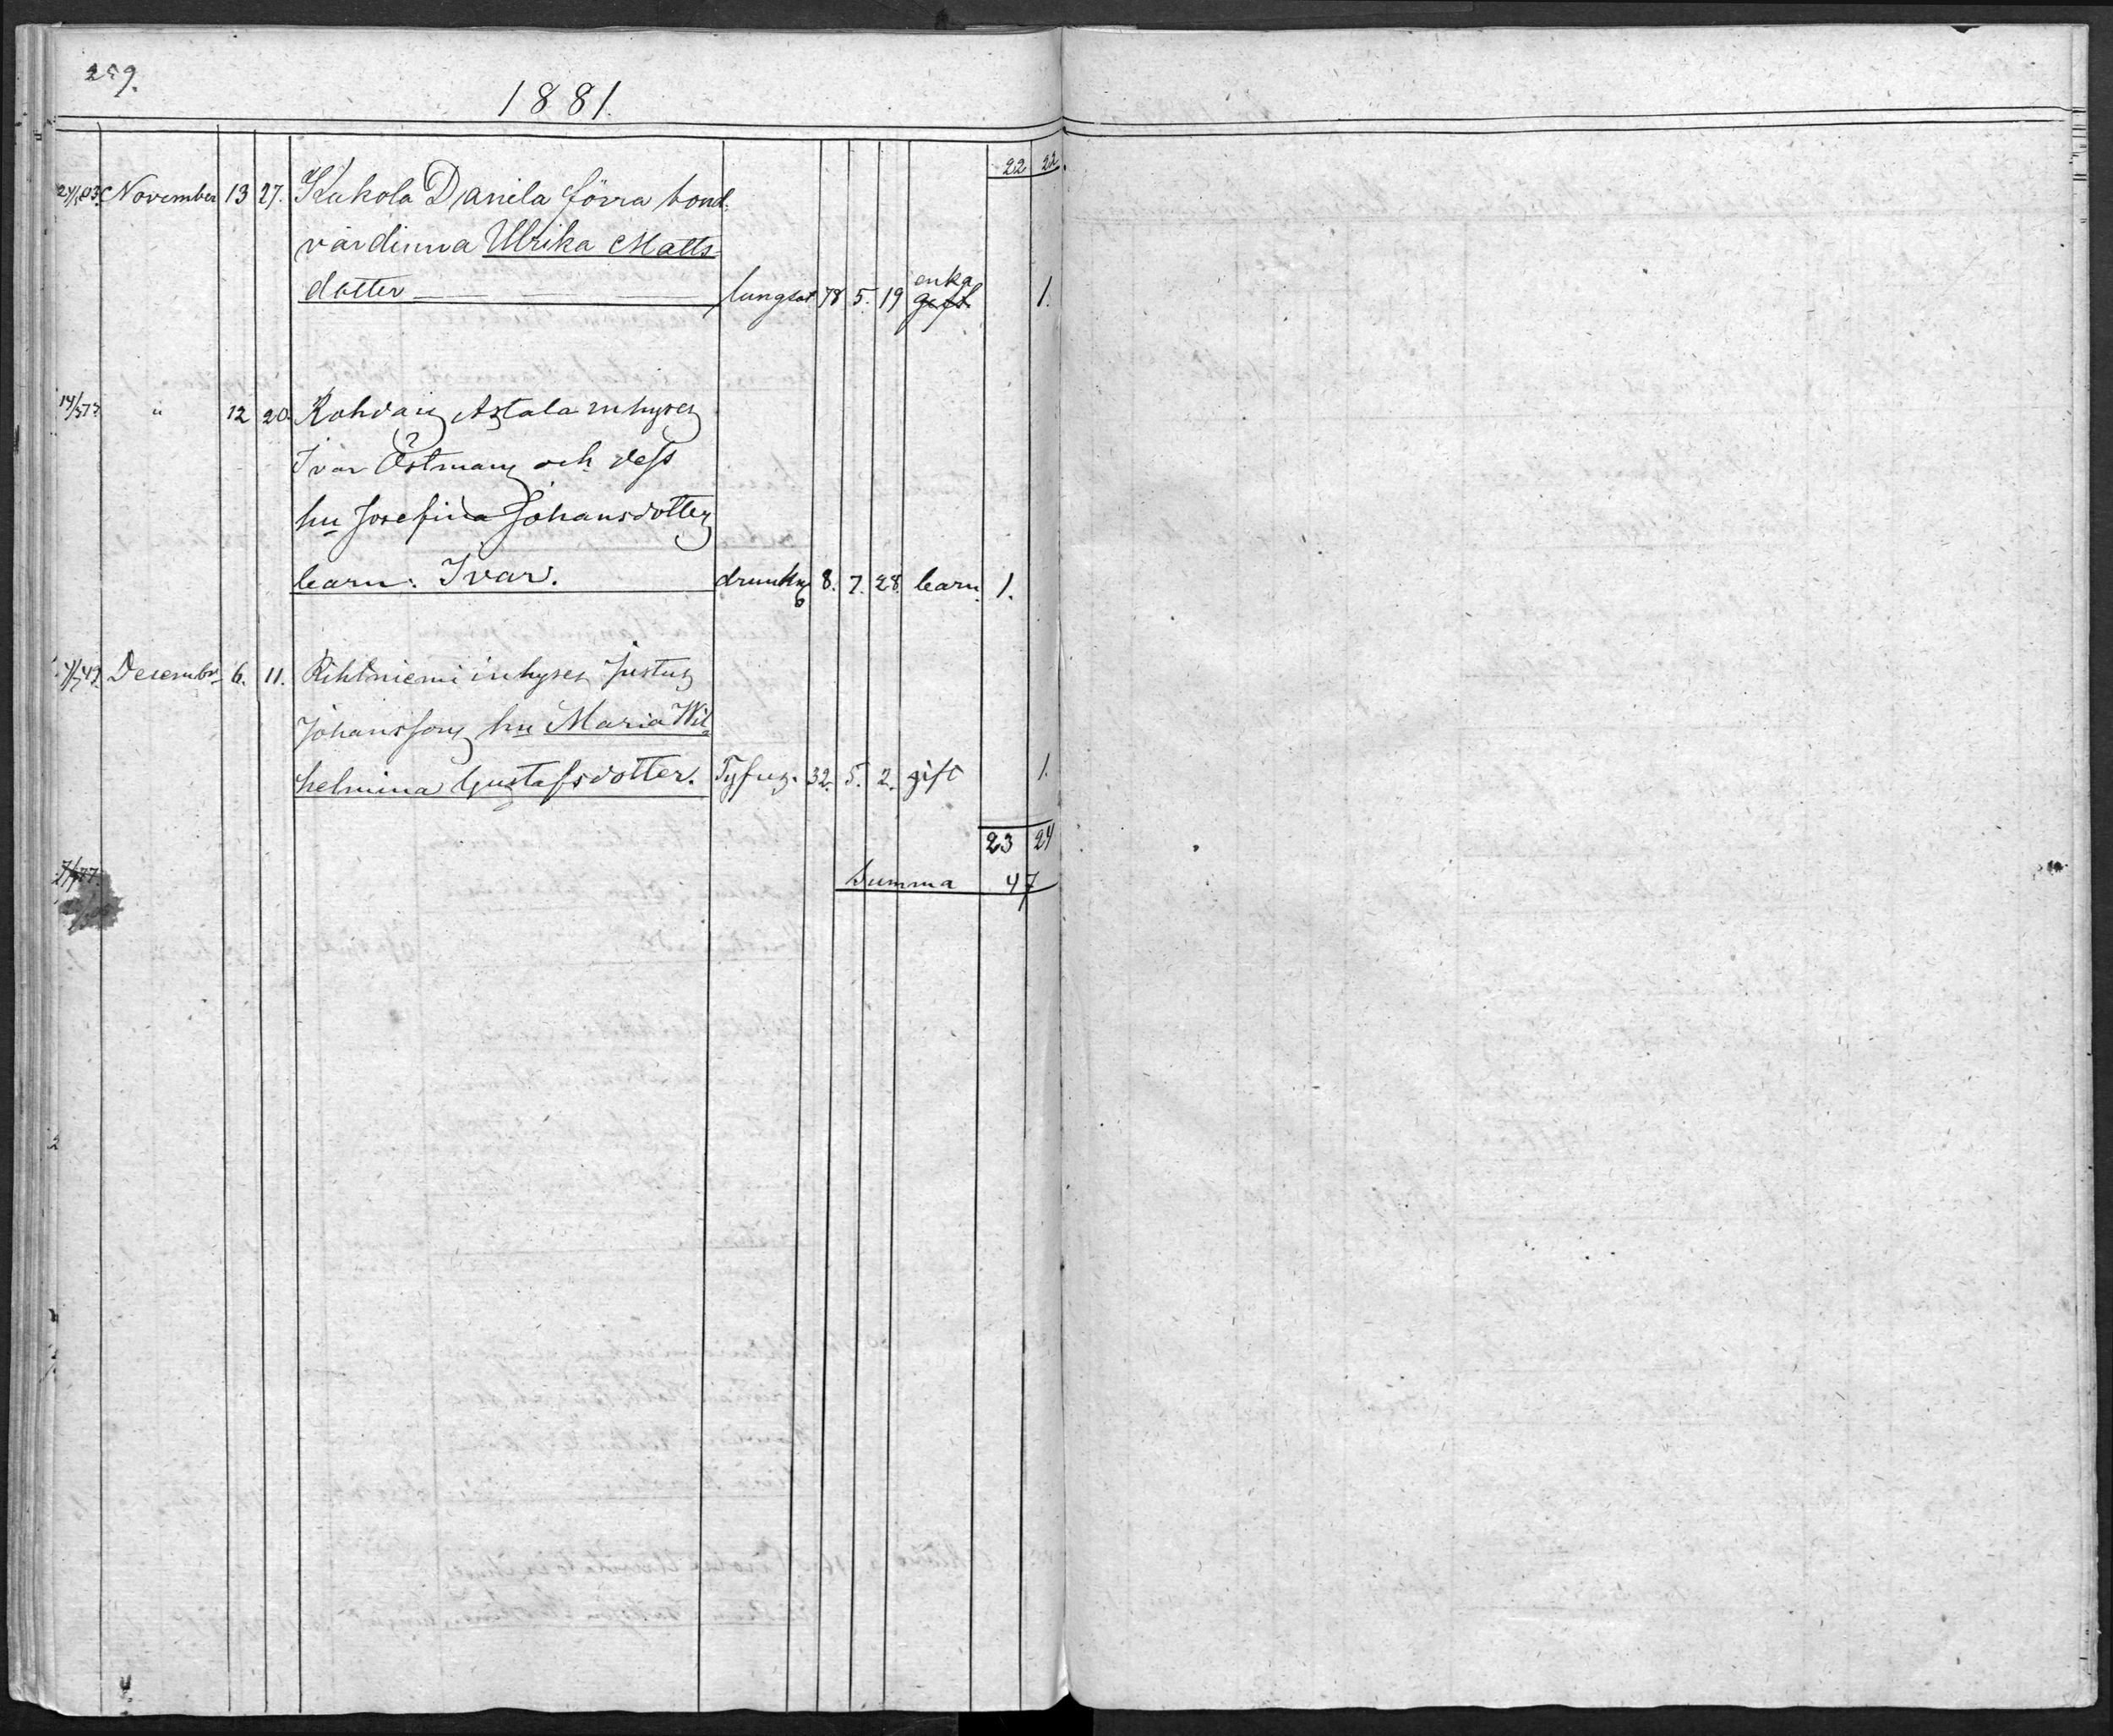 259.
1881.
22. 22.
24/5 03. November 13 27. Kukola Danila förra bond-
värdinna Ulrika Matts-
dotter lungsot 78. 5. 19 enka gift 1.
14/3 73 " 12 20. Rohdais Astala inhyses
Ivar Östman och dess
hu Josefina Johansdotters
barn: Ivar. drunkng 8. 7. 28. barn. 1.
4/7 49. Desember 6. 11. Rihtniemi inhyses Justus
Johanssons hu Maria Wil-
helmina Gustafsdotter. Tyfus. 32. 5. 2. gift 1.
23 24
Summa 47